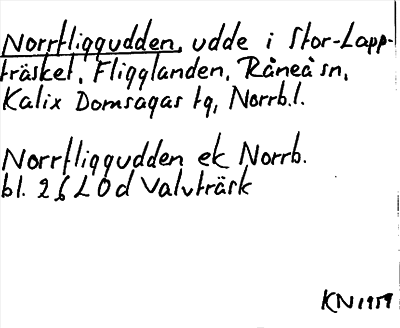 Norrfliggudden, udde i Stor-Lapp-
träsket, Fligglanden, Råneå sn,
Kalix Domsagas tg, Norrb.l.
Norrfliggudden ek Norrb.
bl. 26 L 0d Valvträsk
KN 1959